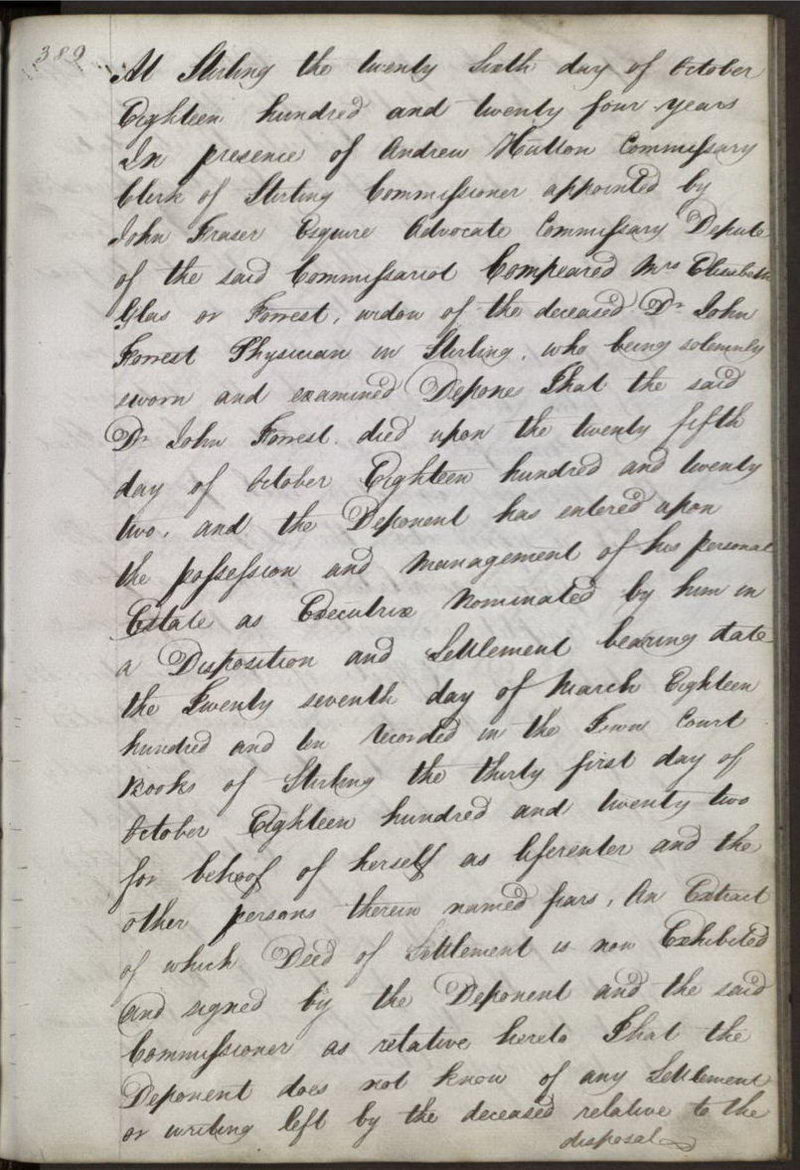 389
At Stirling the twenty Sixth day of October
Eighteen hundred and twenty four years
In presence of Andrew Hutton Commissary
Clerk of Stirling Commissioner appointed by
John Fraser Esquire Advocate Commissary Depute
of the said Commissariot Compeared Mrs Elizabeth
Glas or Forrest, widow of the deceased Dr John
Forrest Physician in Stirling, who being solemnly
sworn and examined Depones That the said
Dr John Forrest died upon the twenty fifth
day of October Eighteen hundred and twenty
two, and the Deponent has entered upon
the possession and management of his personal
Estate as Executrix Nominated by him in
a Disposition and Settlement bearing date
the Twenty seventh day of March Eighteen
hundred and ten recorded in the Town Court
Books of Stirling the thirty first day of
October Eighteen hundred and twenty two
for behoof of herself as liferenter and the
other persons therein named fiars, An Extract
of which Deed of Settlement is now Exhibited
and signed by the Deponent and the said
Commissioner as relative hereto That the
Deponent does not know of any Settlement
or writing left by the deceased relative to the
disposal